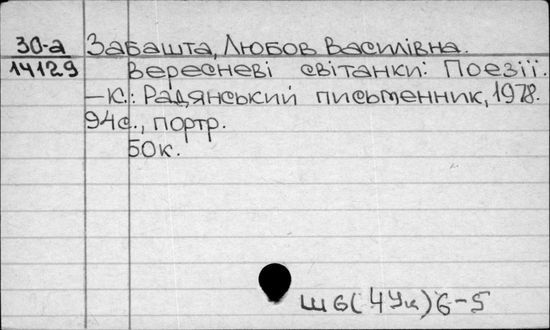 30-а Забашта, Любов Василівна.
14129 Вересневі світанки: Поезії.
–К.: Радянський письменник, 1978.
94с., портр.
50к.
Ш6(4Ук)6-5